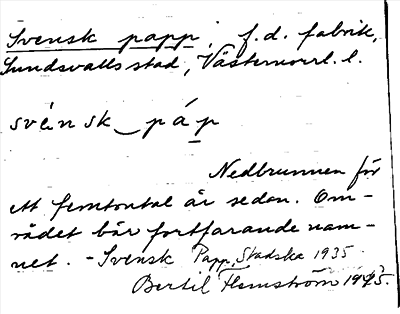 Svensk papp, f.d. fabrik,
Sundsvalls stad, Västernorrl. l.
svén sk‿pá p
Nedbrunnen för
ett femtontal år sedan. Om-
rådet bär fortfarande nam-
net. - Svensk Papp, Stadska 1935.
Bertil Flemström 1943.